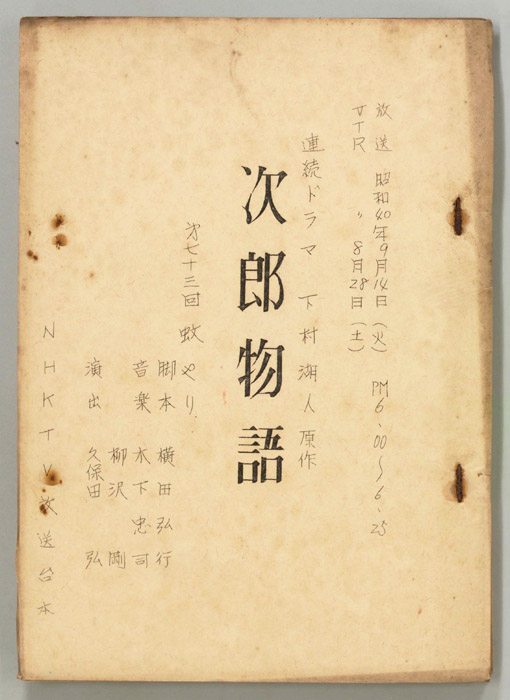 放送 昭和40年9月14日(火) PM6.00~6.25
VTR 〃 8月28日(土)
連続ドラマ 下村湖人原作
次郎物語
第七十三回 蚊やり
脚本 横田弘行
音楽 木下忠司
柳沢 剛
演出 久保田 弘
NHKTV放送台本